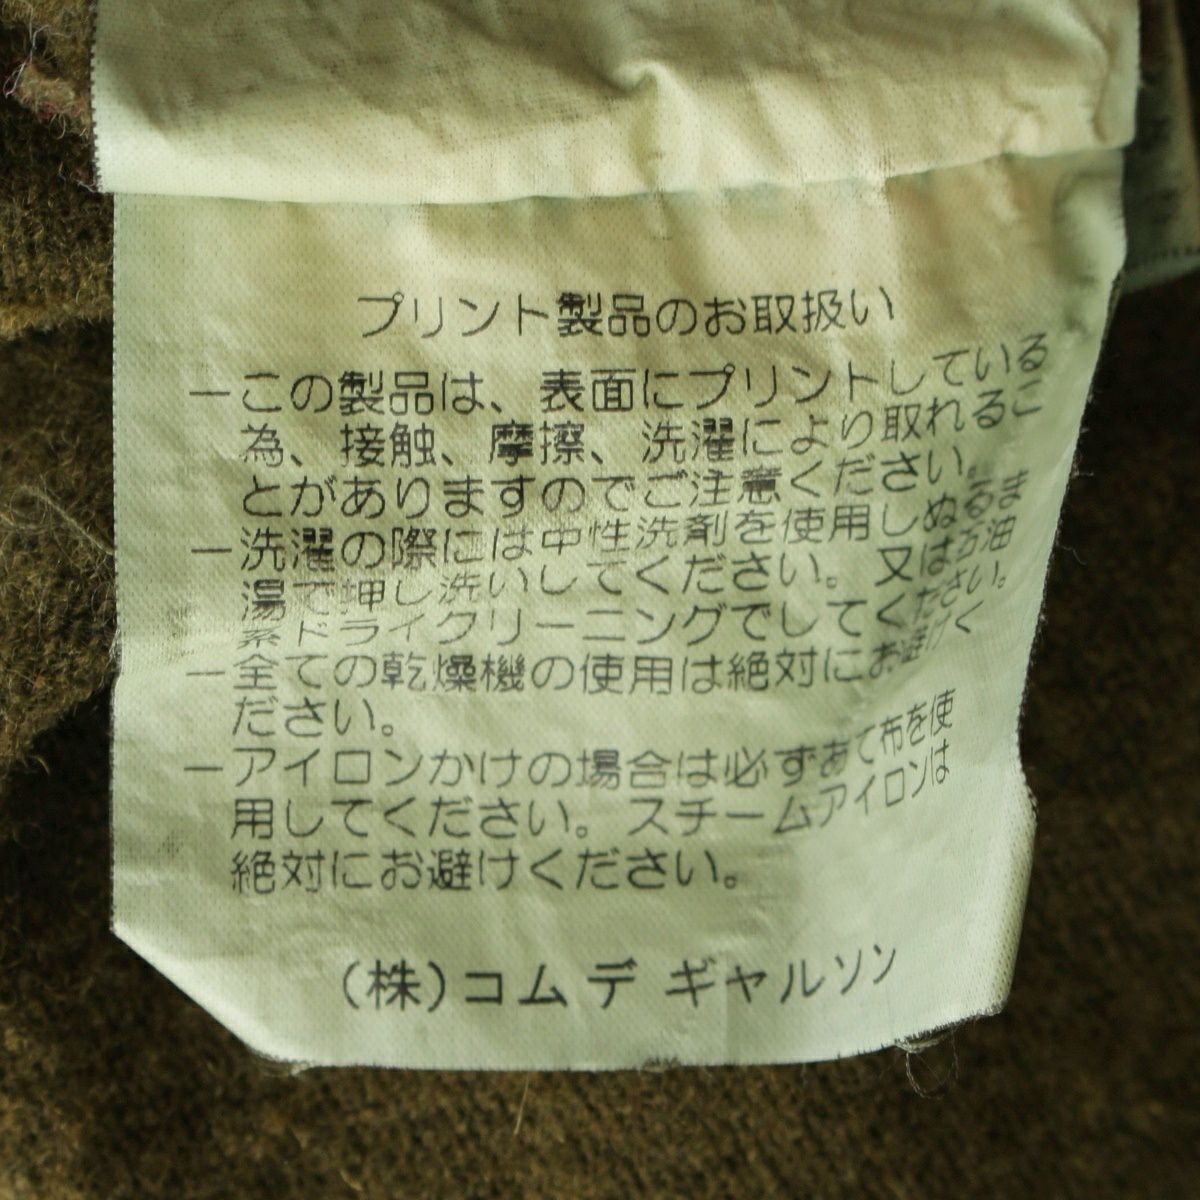 プリント製品のお取扱い
－この製品は、表面にプリントしている
為、接触、摩擦、洗濯により取れるこ
とがありますのでご注意ください。
－洗濯の際には中性洗剤を使用しぬるま
湯で押し洗いしてください。又は石油
系ドライクリーニングでしてください。
－全ての乾燥機の使用は絶対にお避けく
ださい。
－アイロンかけの場合は必ずあて布を使
用してください。スチームアイロンは
絶対にお避けください。
(株)コム デ ギャルソン